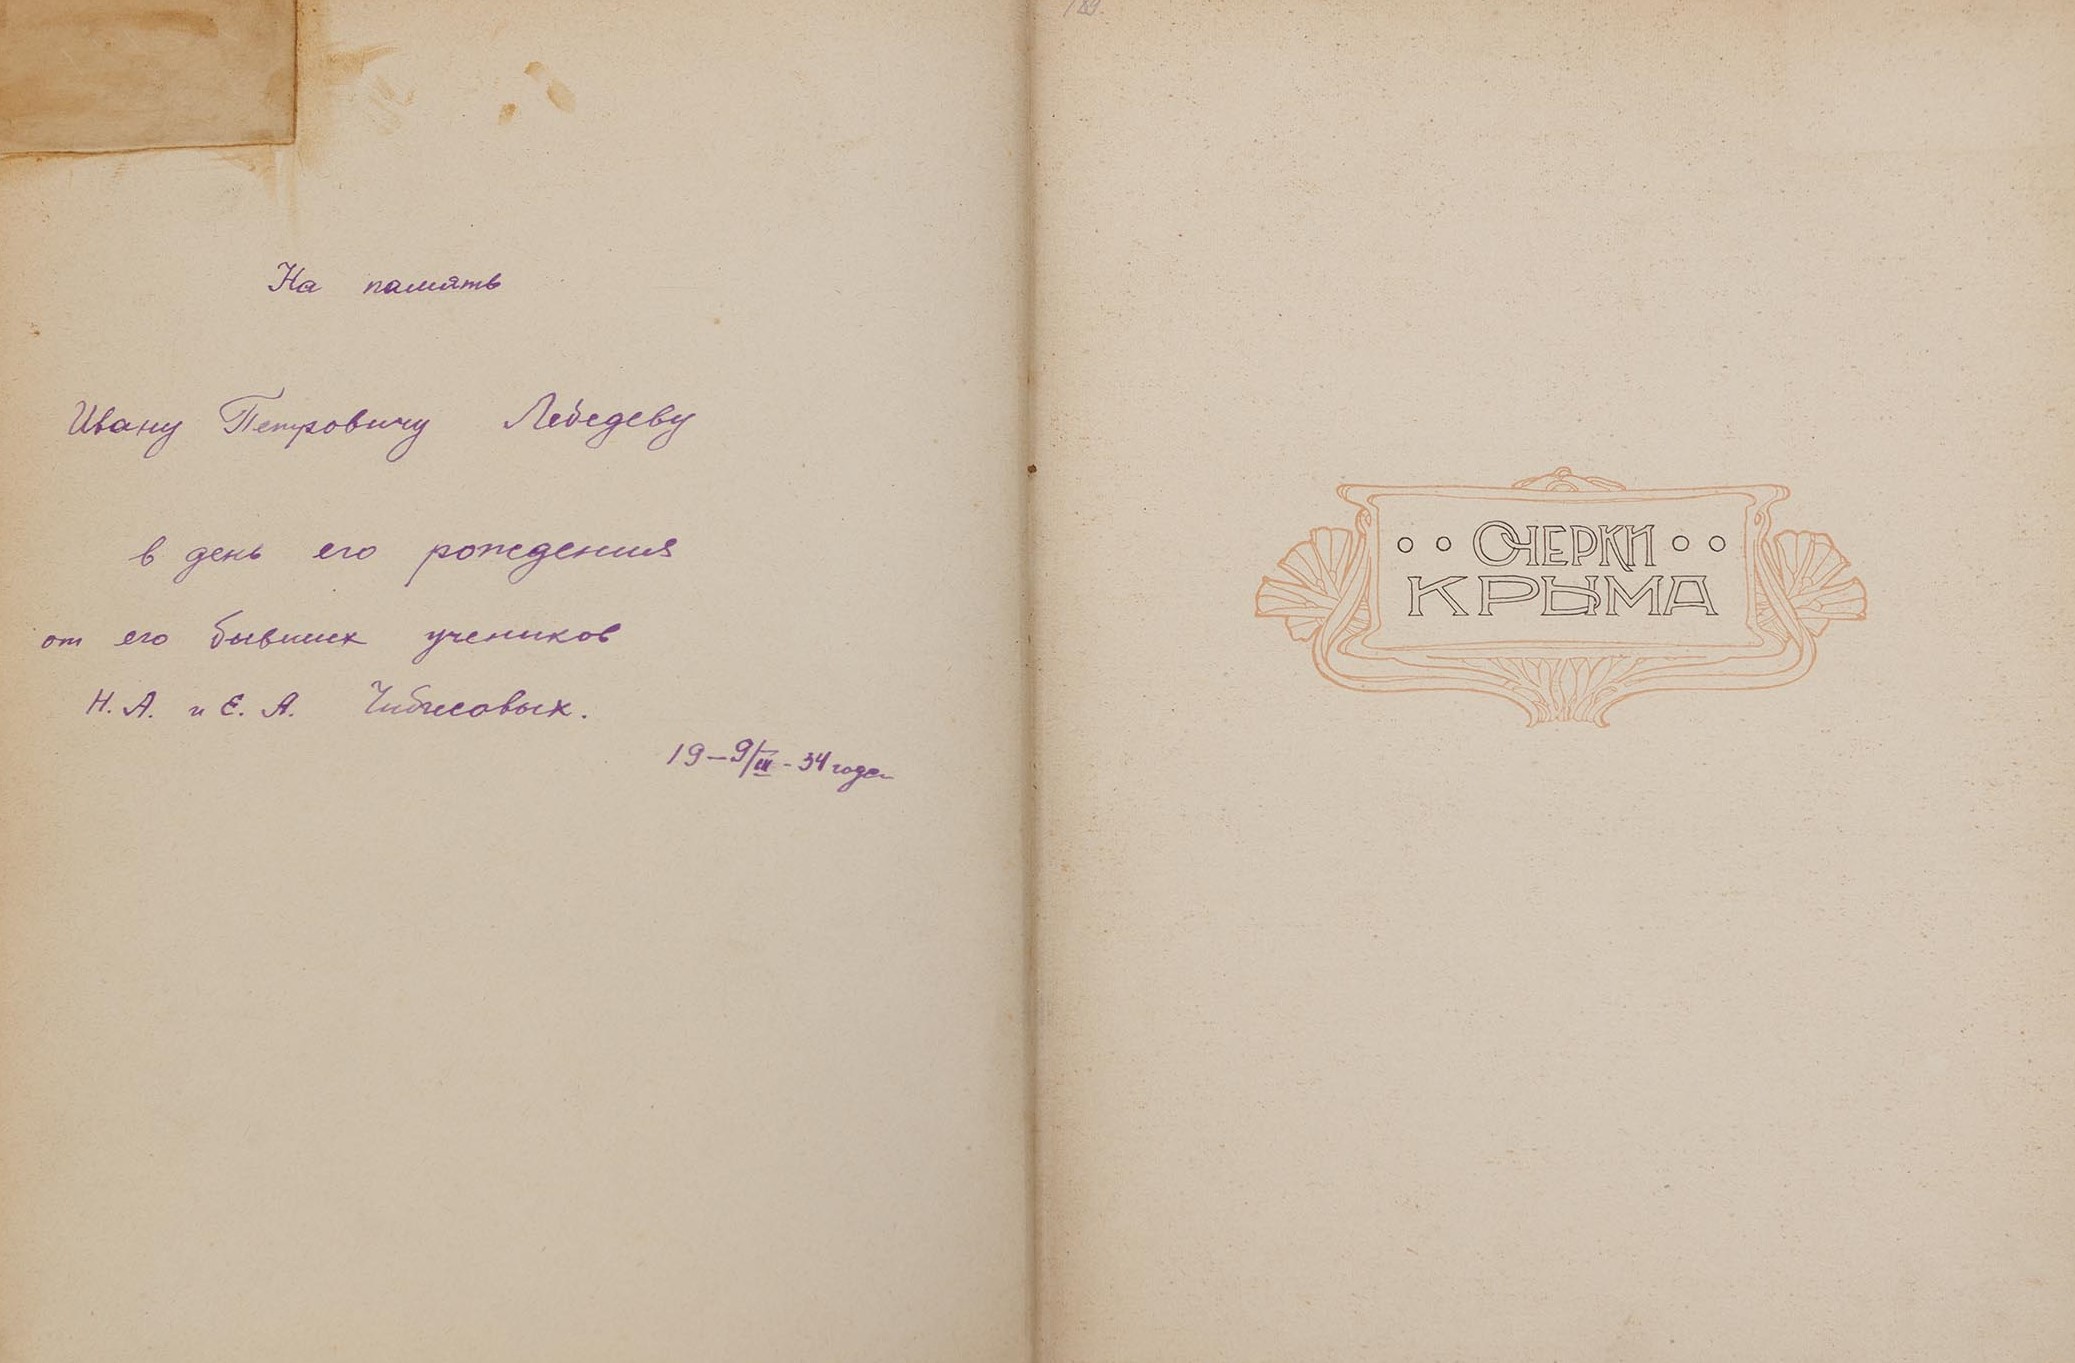 На память
Ивану Петровичу Лебедеву
в день его рождения
от его бывших учеников
Н. А. и Е. А. Чибисовых.
19–9/III - 34 года
ОЧЕРКИ
КРЫМА